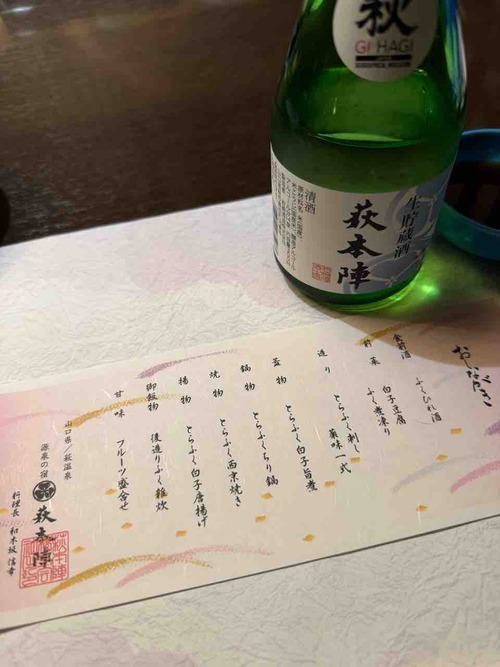 萩
GI HAGI
清酒
生貯蔵酒
萩本陣
おしながき
食前酒 ふくひれ酒
前菜 白子豆腐
ふく煮凍り
造り とらふく刺し
薬味一式
蓋物 とらふく白子旨煮
鍋物 とらふくちり鍋
焼物 とらふく西京焼き
揚物 とらふく白子唐揚げ
御飯物 後造りふく雑炊
甘味 フルーツ盛合せ
山口県/萩温泉
源泉の宿
萩本陣
料理長 和木坂 信幸